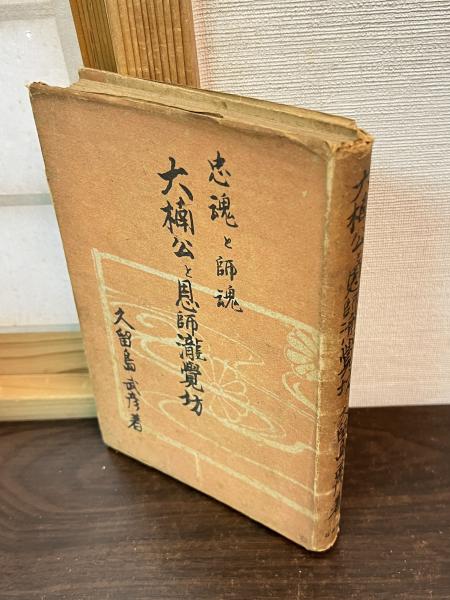 忠魂と師魂
大楠公と恩師瀧覺坊
久留島武彦著
大楠公と恩師瀧覺坊